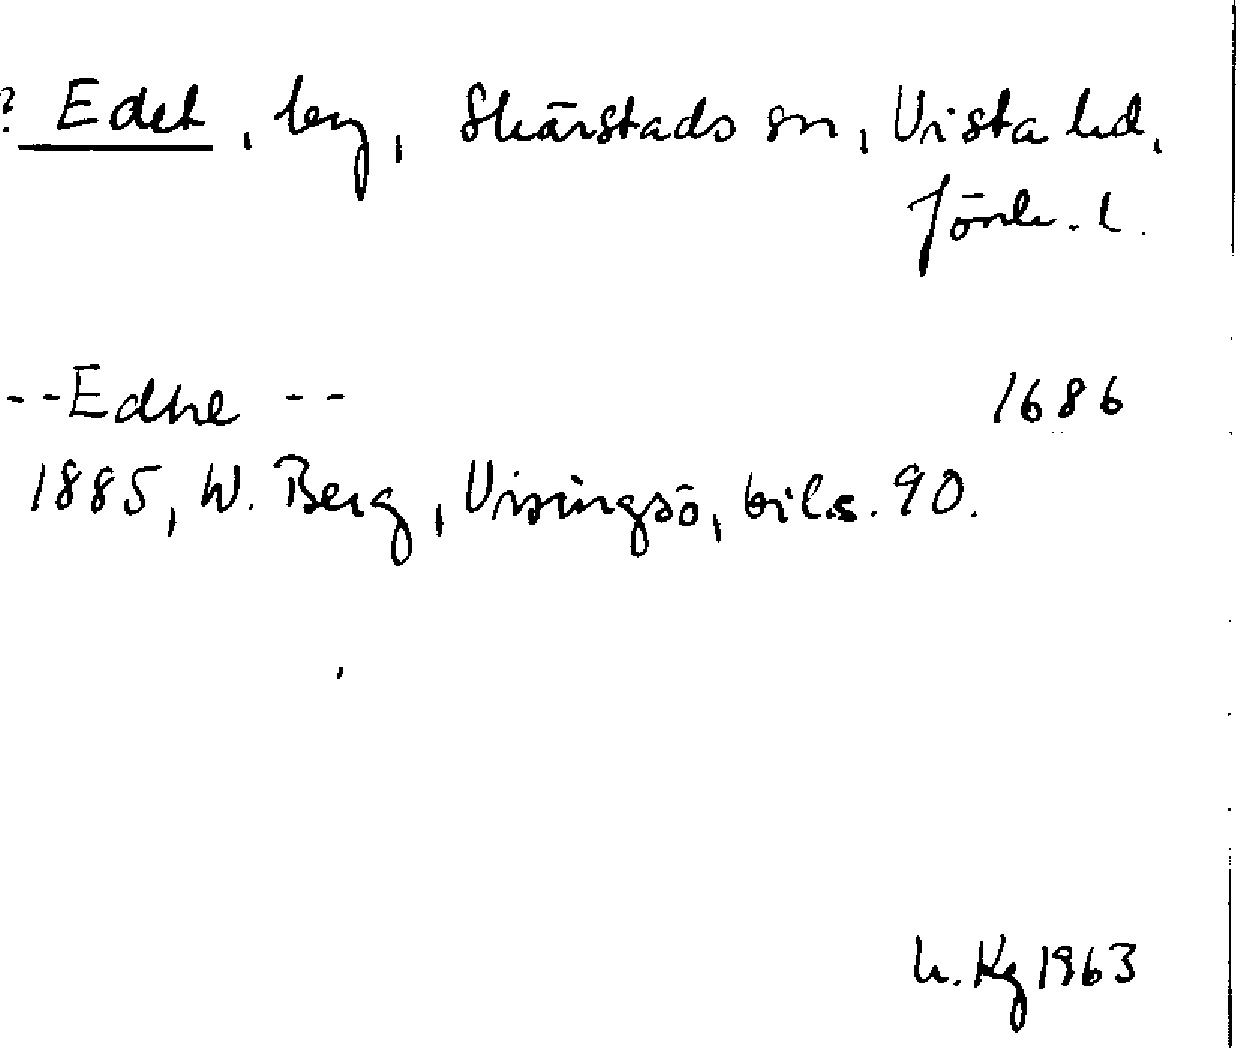 ? Edet, by, Skärstads sn, Vista hd,
Jönk. l.
--Edhe -- 1686
1885, W. Berg, Visingsö, bil.s. 90.
h. Kg 1963